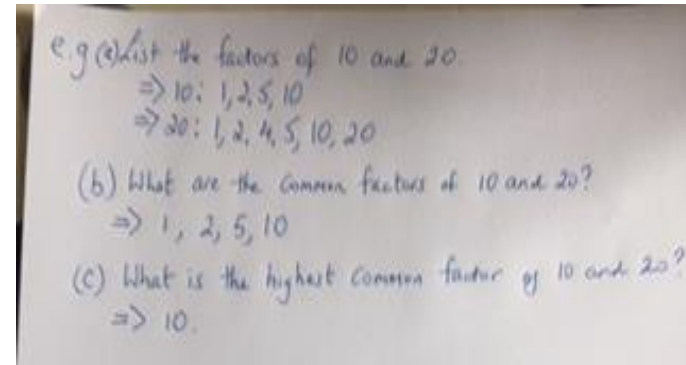 e.g (a) List the factors of 10 and 20.
=> 10: 1, 2, 5, 10
=> 20: 1, 2, 4, 5, 10, 20
(b) What are the common factors of 10 and 20?
=> 1, 2, 5, 10
(c) What is the highest common factor of 10 and 20?
=> 10.